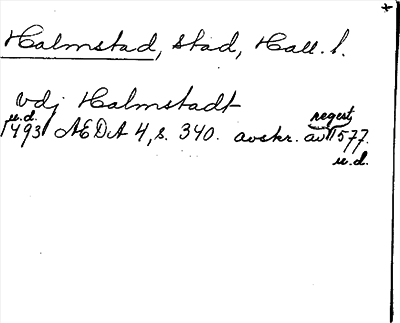 Halmstad, stad, Hall. l.
vdj Halmstadt
u.d. regest
1493 ÆDA 4, s. 340. avskr. av 1577.
u.d.